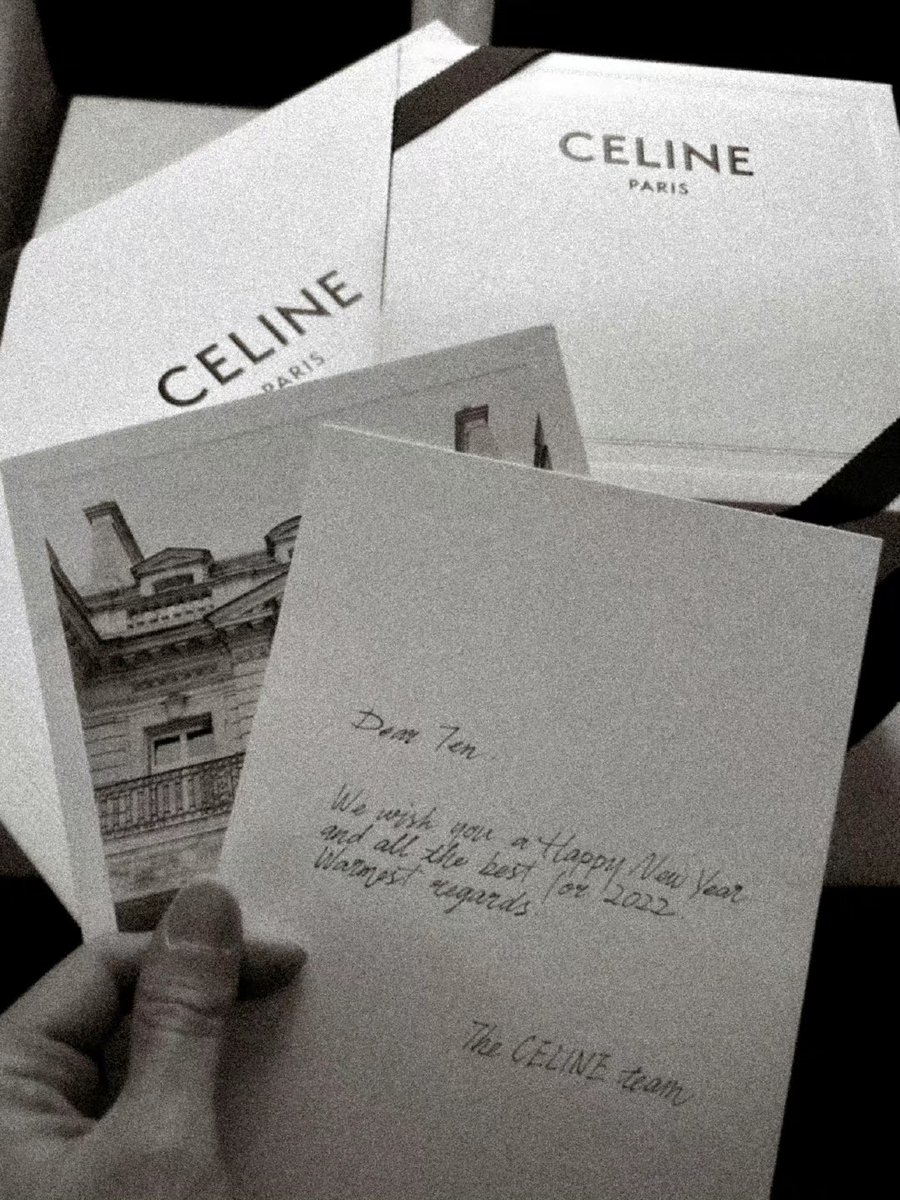 CELINE
PARIS
CELINE
PARIS
Dear Ten
We wish you a Happy New Year
and all the best for 2022
Warmest regards
The CELINE team